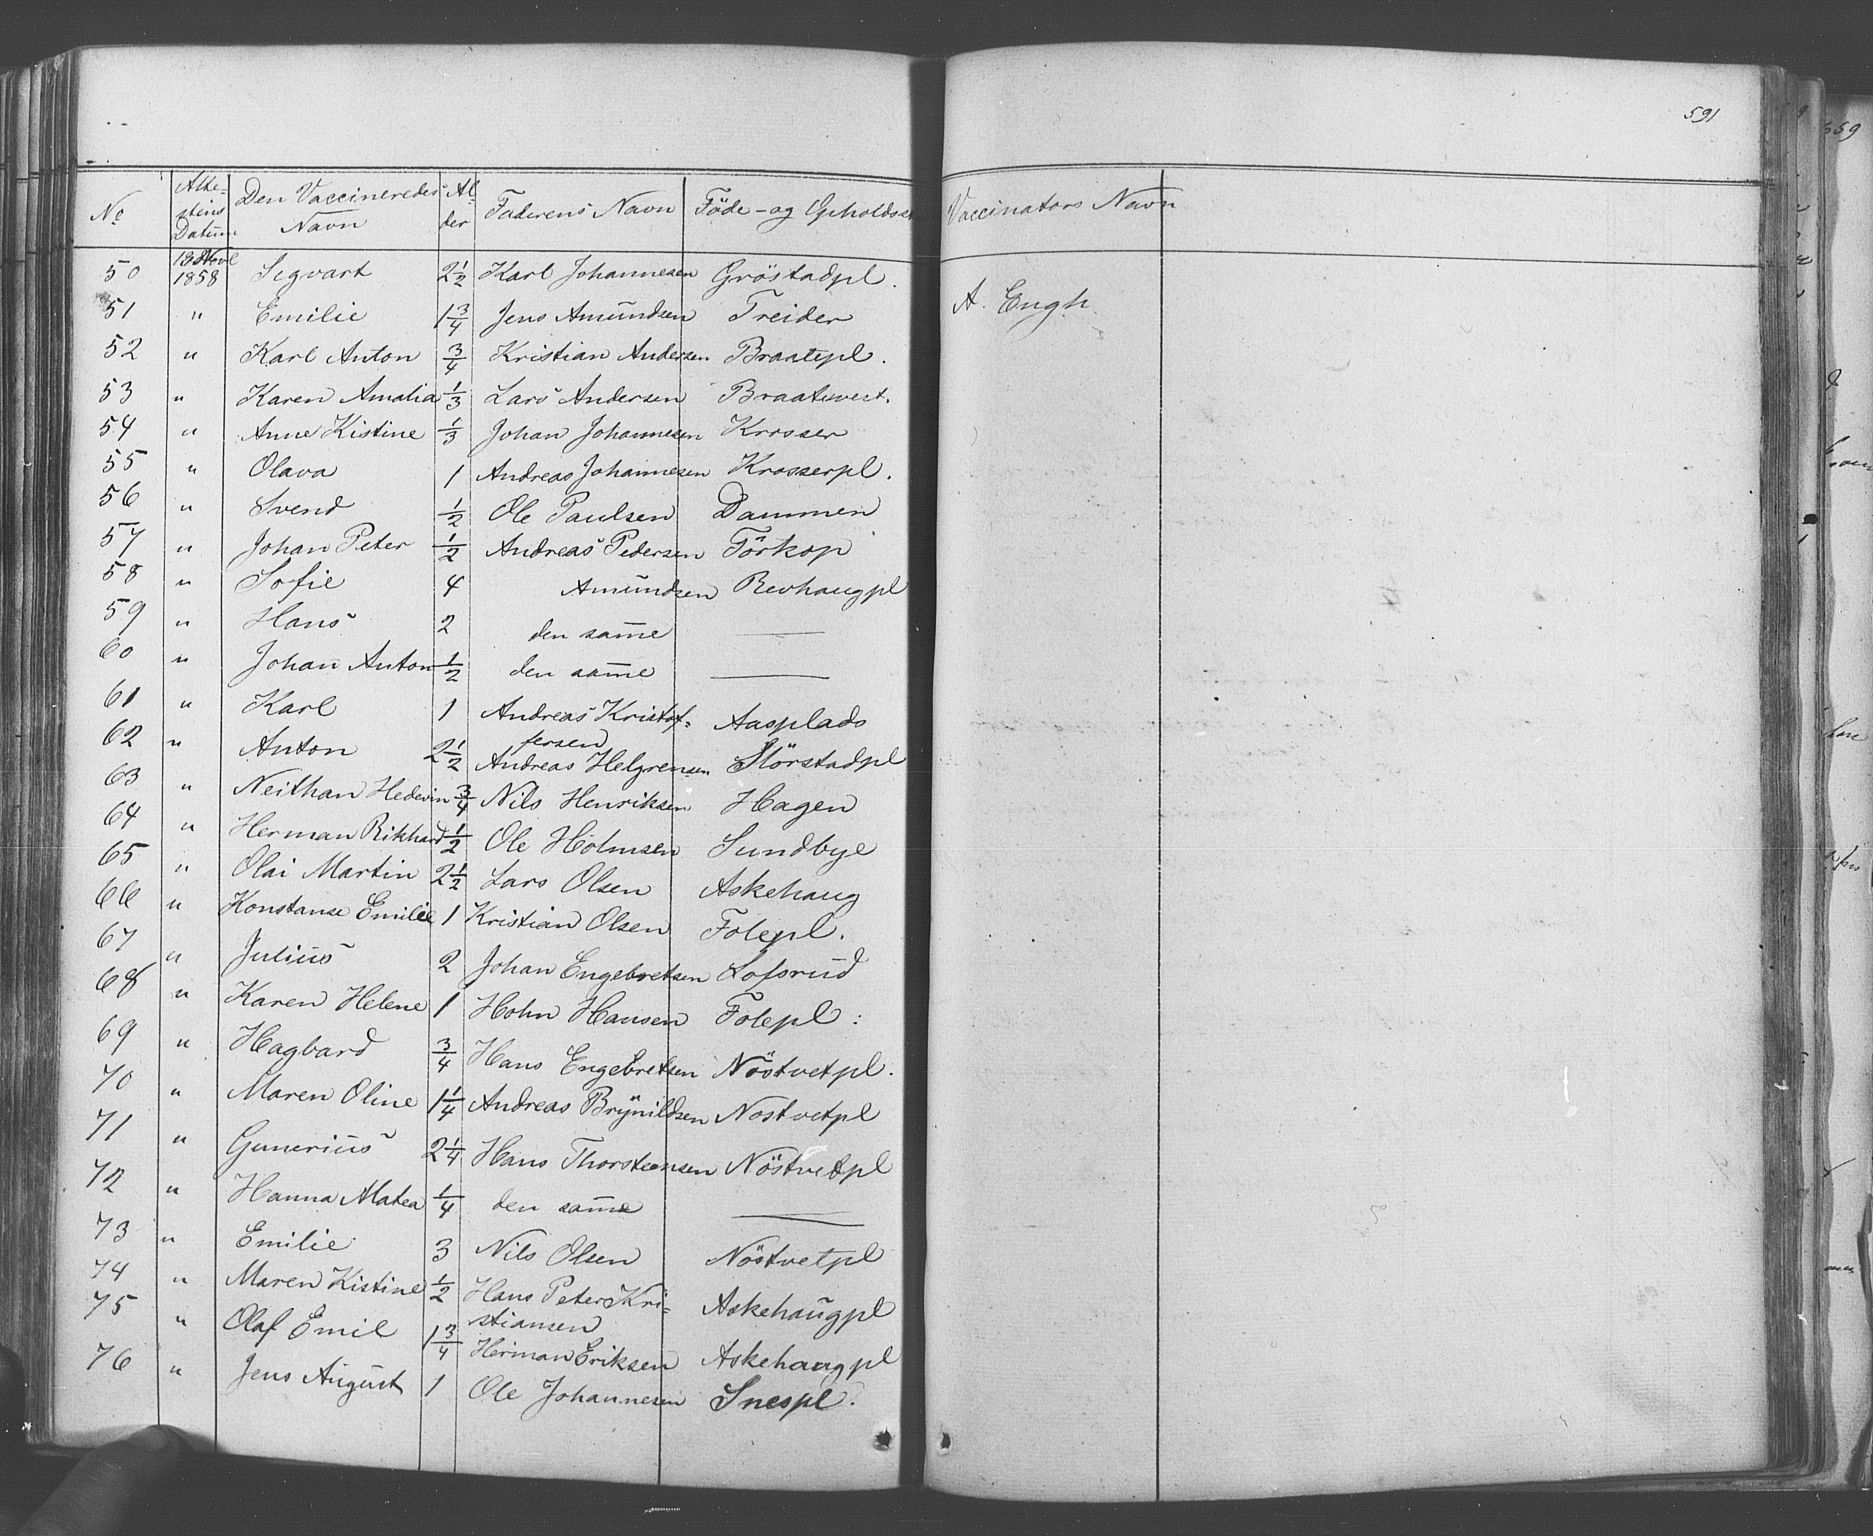 591
No | Attestens Datum | Den Vaccineredes Navn | Alder | Faderens Navn | Föde- og Opholdsst | Vaccinators Navn
50 | 13 Novb 1858 | Segvart | 2 1/2 | Karl Johannesen | Gröstadpl. |
51 | " | Emilie | 1 3/4 | Jens Amundsen | Treider | A. Engh
52 | " | Karl Anton | 3/4 | Kristian Andersen | Braatepl.
53 | " | Karen Amalia | 1/3 | Lars Andersen | Braatevest.
54 | " | Anne Kistine | 1/3 | Johan Johannesen | Krosser
55 | " | Olava | 1 | Andreas Johannesen | Krosserpl.
56 | " | Svend | 1/2 | Ole Paulsen | Dammen
57 | " | Johan Peter | 1/2 | Andreas Pedersen | Förkop
58 | " | Sofie | 4 | Amundsen | Revhaugpl
59 | " | Hans | 2 | den samme | —
60 | " | Johan Anton | 1/2 | den samme | —
61 | " | Karl | 1 | Andreas Kristof-
fersen | Aasplads
62 | " | Anton | 2 1/2 | Andreas Helgrensen | Störstadpl
63 | " | Neithan Hedevin | 3/4 | Nils Henriksen | Hagen
64 | " | Herman Rikhard | 1/2 | Ole Holmsen | Sundbye
65 | " | Olai Martin | 2 1/2 | Lars Olsen | Askehaug
66 | " | Konstanse Emilie | 1 | Kristian Olsen | Folepl.
67 | " | Julius | 2 | Johan Engebretsen | Lofsrud
68 | " | Karen Helene | 1 | Hohn Hansen | Folepl:
69 | " | Hagbard | 3/4 | Hans Engebretsen | Nöstvetpl.
70 | " | Maren Oline | 1 1/4 | Andreas Brynildsen | Nostvetpl
71 | " | Gunerius | 2 1/4 | Hans Thorsteensen | Nöstvetpl
72 | " | Hanna Matea | 1/4 | den samme | —
73 | " | Emilie | 3 | Nils Olsen | Nöstvetpl
74 | " | Maren Kistine | 1/2 | Hans Peter Kri-
stiansen | Askehaugpl
75 | " | Olaf Emil | 1 3/4 | Herman Eriksen | Askehaugpl
76 | " | Jens August | 1 | Ole Johannesen | Snespl.
559